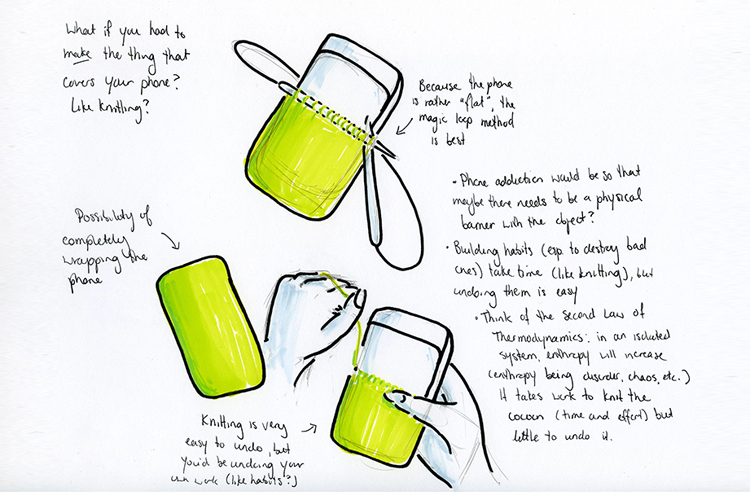 What if you had to
make the thing that
covers your phone?
Like knitting?
Because the phone
is rather "flat", the
magic loop method
is best
• Phone addiction would be so that
maybe there needs to be a physical
barrier with the object?
• Building habits (esp. to destroy bad
ones) take time (like knitting), but
undoing them is easy
• Think of the second Law of
Thermodynamics: in an isolated
system, enthropy will increase
(enthropy being disorder, chaos, etc.)
It takes work to knit the
cocoon (time and effort) but
little to undo it.
Possibility of
completely
wrapping the
phone
Knitting is very
easy to undo, but
you'd be undoing your
own work (like habits?)